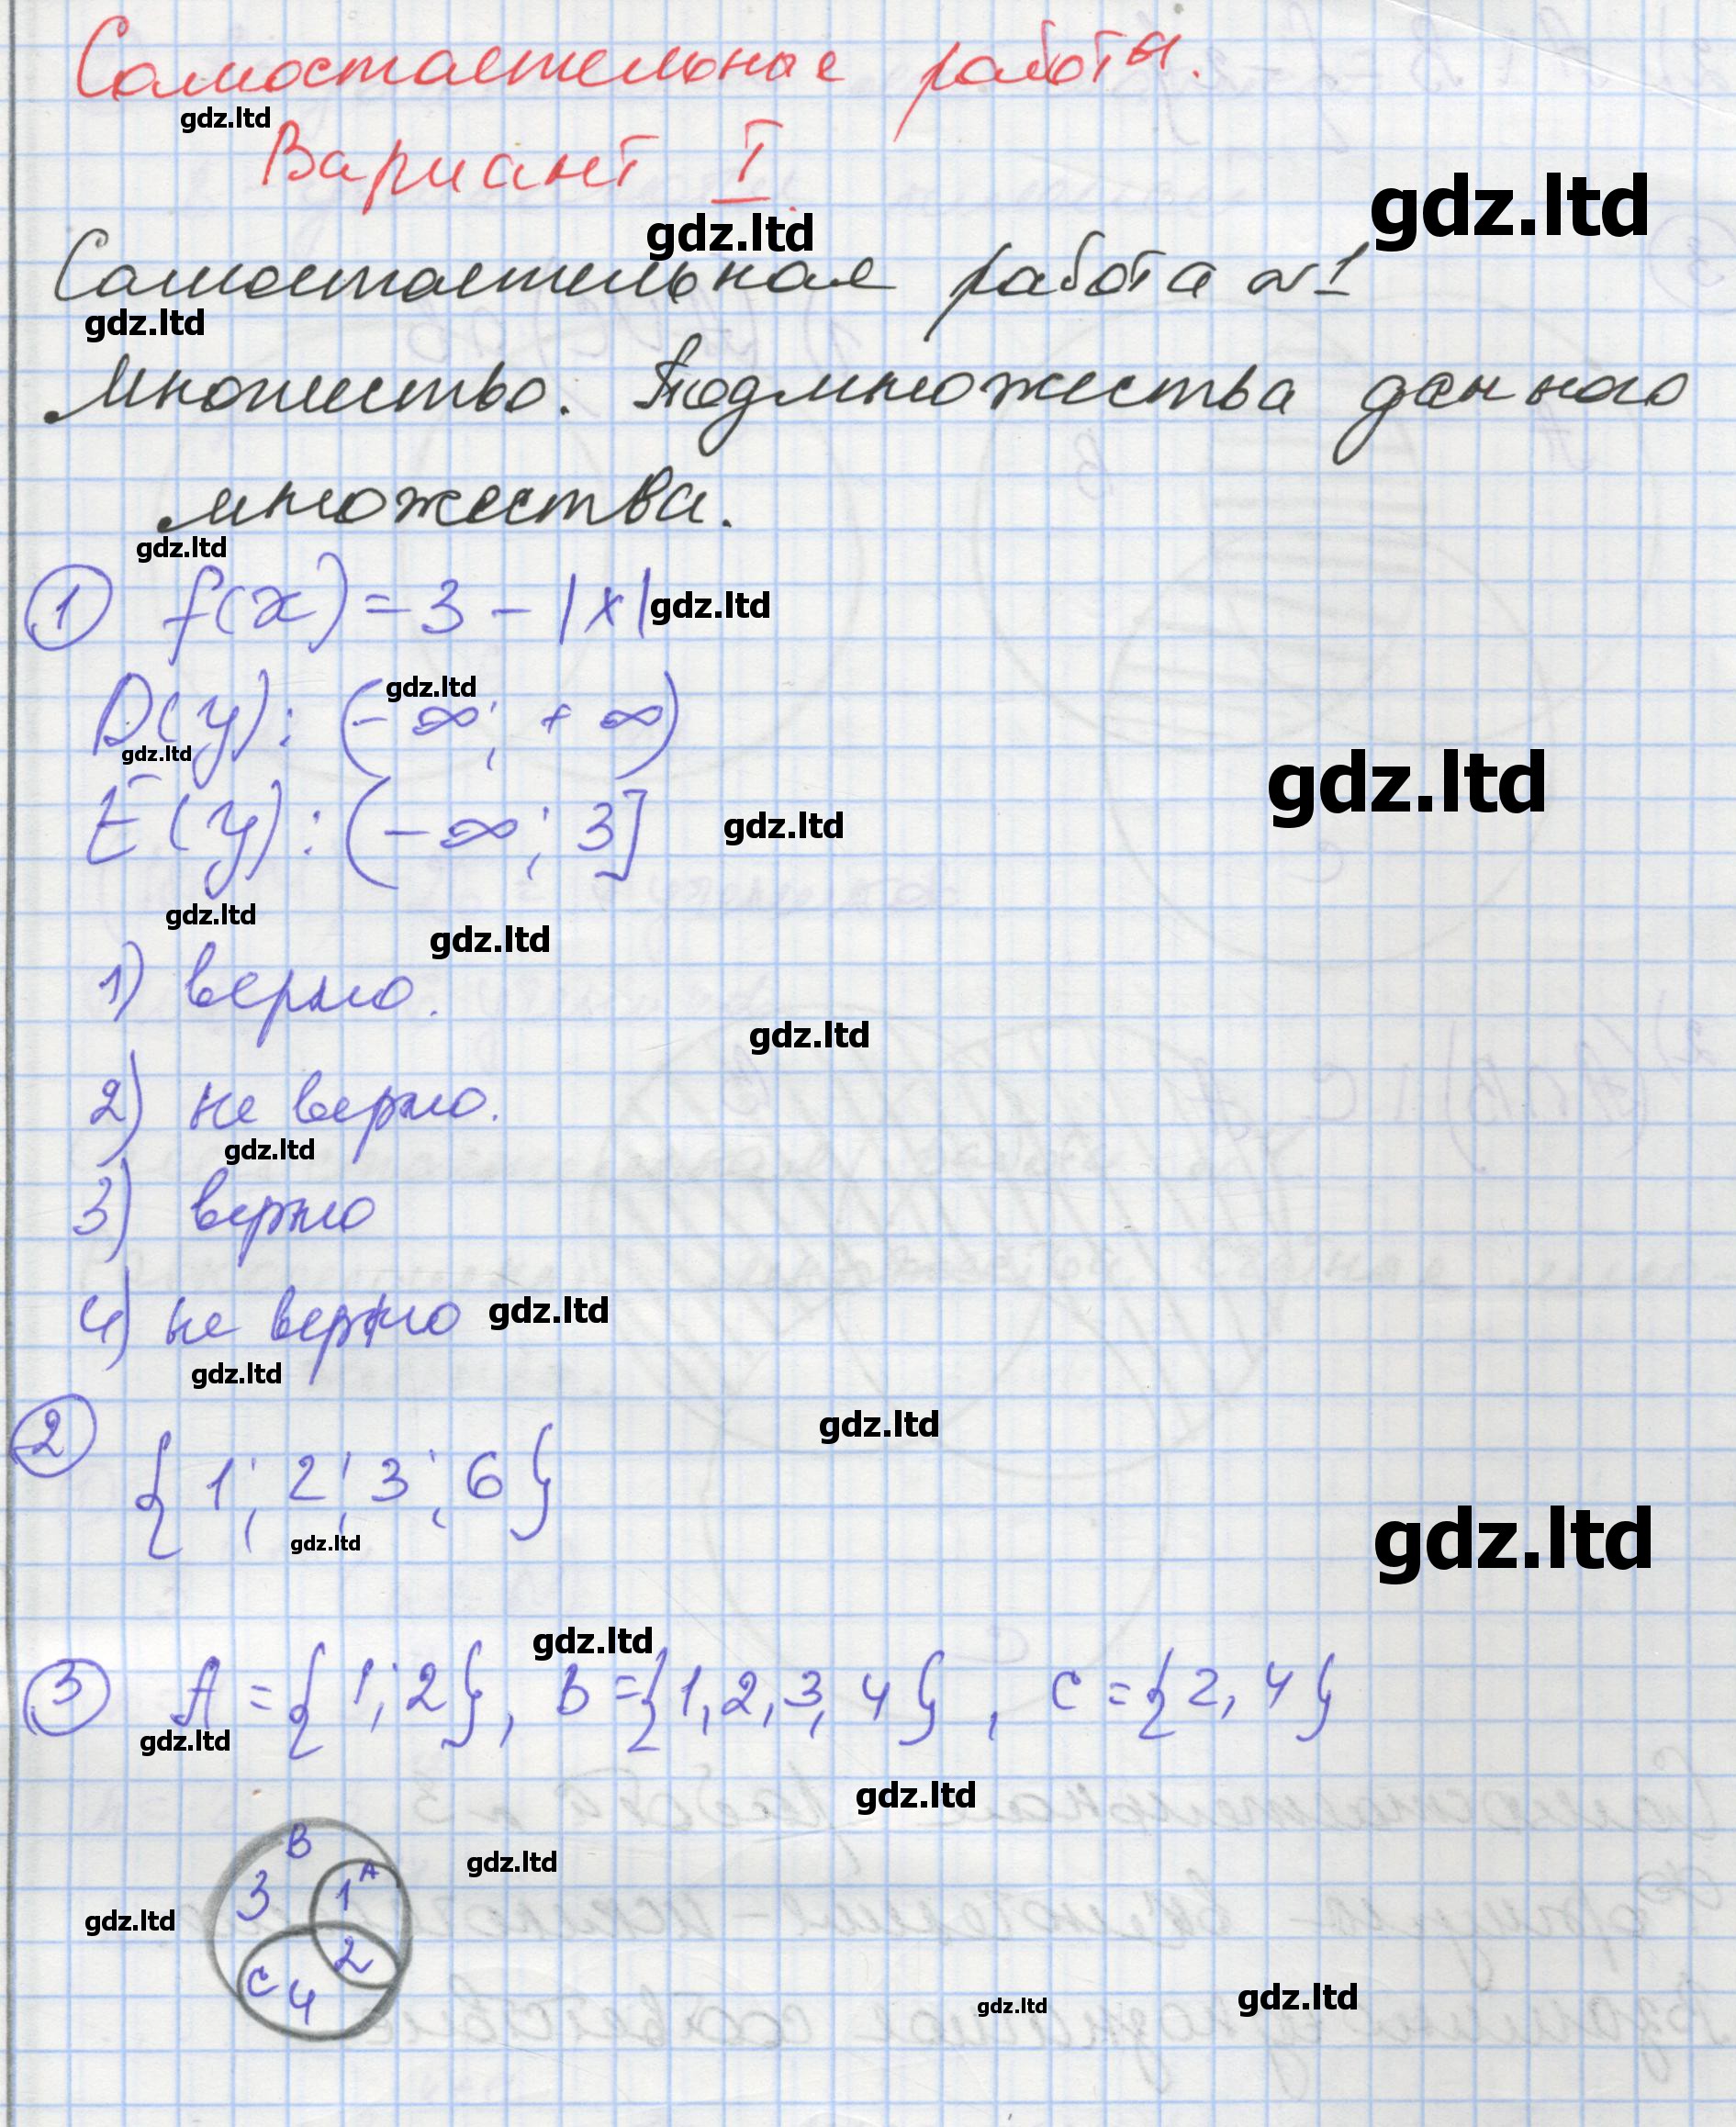 Самостоятельные работы.
gdz.ltd
Вариант I.
gdz.ltd
gdz.ltd
Самостоятельная работа №1
gdz.ltd
Множество. Подмножества данного
множества.
gdz.ltd
1 f(x) = 3 - |x| gdz.ltd
gdz.ltd
D(y): (-∞; +∞)
gdz.ltd
gdz.ltd
E(y): (-∞; 3] gdz.ltd
gdz.ltd
gdz.ltd
1) верно.
gdz.ltd
2) не верно.
gdz.ltd
3) верно
4) не верно gdz.ltd
gdz.ltd
gdz.ltd
2 {1; 2; 3; 6}
gdz.ltd
gdz.ltd
gdz.ltd
3 A = {1; 2}, B = {1, 2, 3, 4}, C = {2, 4}
gdz.ltd
gdz.ltd
B
gdz.ltd
3 1 A
gdz.ltd
2
C 4
gdz.ltd
gdz.ltd